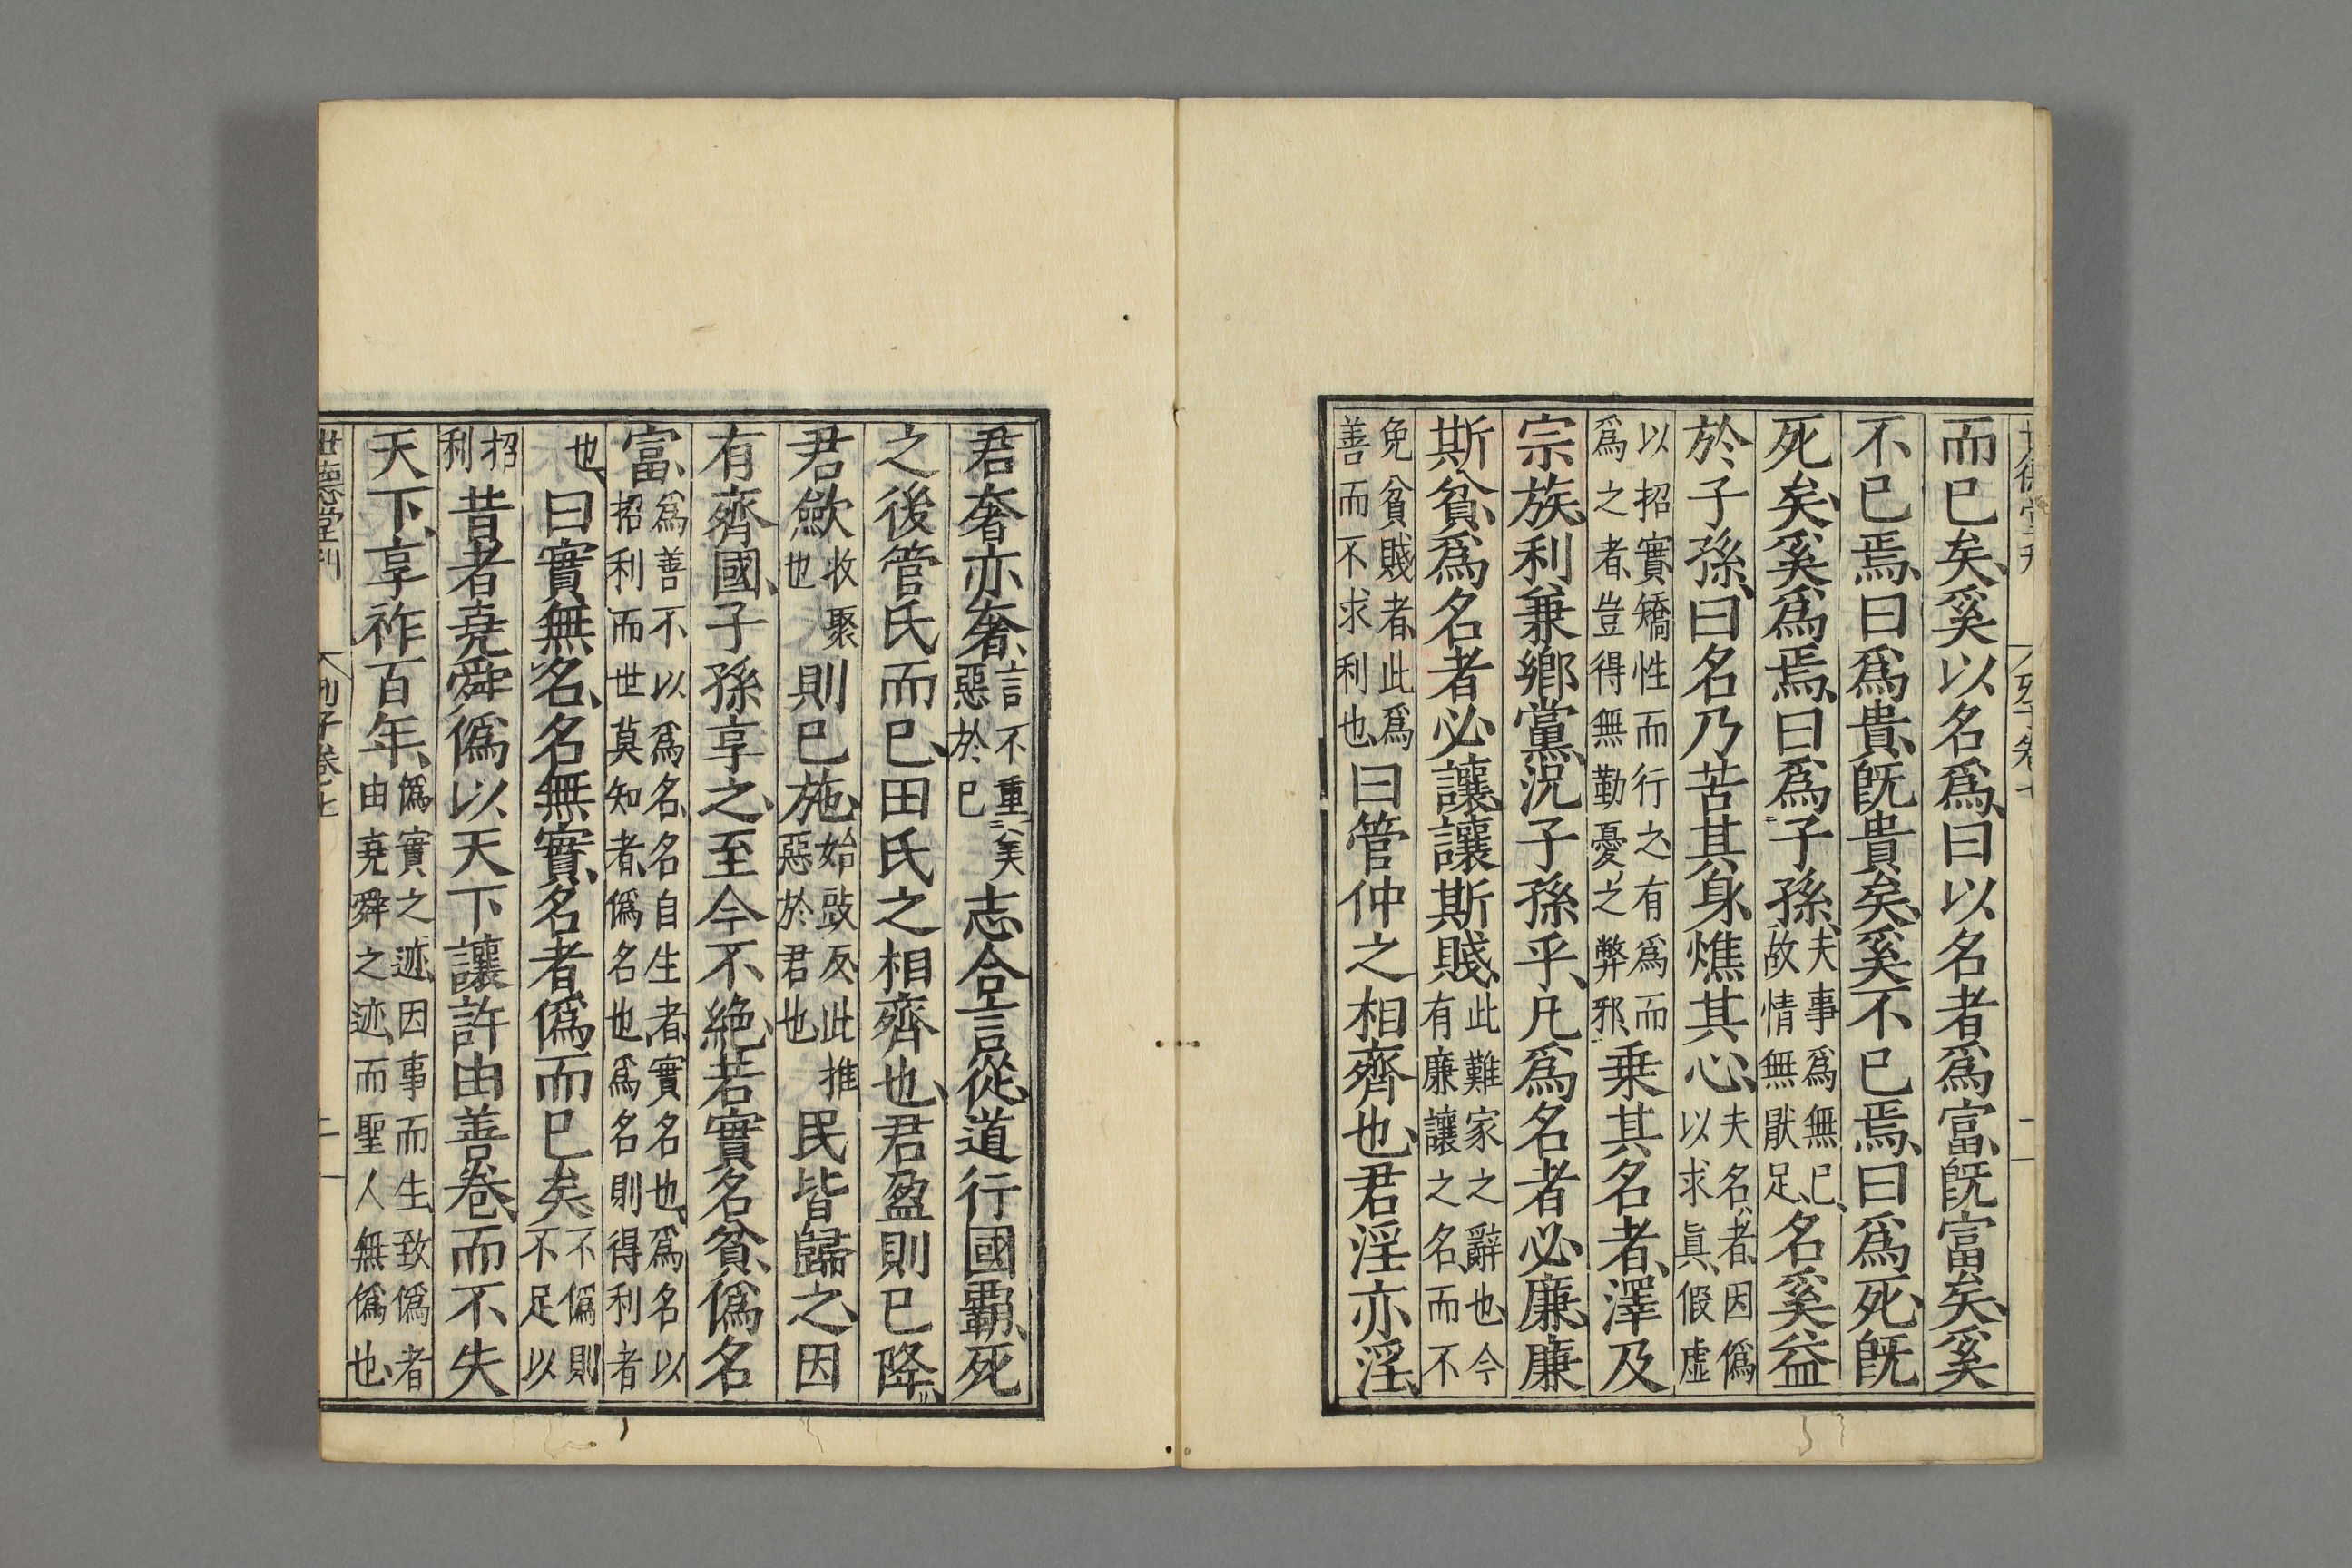 而已矣、奚以名爲、曰以名者爲富、旣富矣、奚
不已焉、曰爲貴、旣貴矣、奚不已焉、曰爲死、旣
死矣、奚爲焉、曰爲子孫、夫事爲無已、故情無厭足、名奚益
於子孫、曰名乃苦其身、燋其心、夫名者、因僞以求眞、假虛
以招實、矯性而行之、有爲而爲之者、豈得無勤憂之弊邪、乗其名者、澤及
宗族、利兼鄉黨、況子孫乎、凡爲名者必廉、廉
斯貧、爲名者必讓、讓斯賤、此難家之辭也、今有廉讓之名、而不
免貧賤者、此爲善而不求利也、曰管仲之相齊也、君淫亦淫、
君奢亦奢、言不重美惡於已志合言從、道行國霸、死
之後管氏而已、田氏之相齊也、君盈則已降、
君歛收聚也則已施、始豉反此推惡於君也民皆歸之、因
有齊國、子孫享之、至今不絶、若實名貧、僞名
富、爲善不以爲名、名自生者、實名也、爲名以招利而世莫知者、僞名也爲名則得利者
也、曰實無名、名無實、名者僞而已矣、不僞則不足以
招利昔者堯舜僞以天下讓許由善卷、而不失
天下、享祚百年、僞實之迹、因事而生、致僞者由堯舜之迹、而聖人無僞也、
世德堂刊 列子卷七